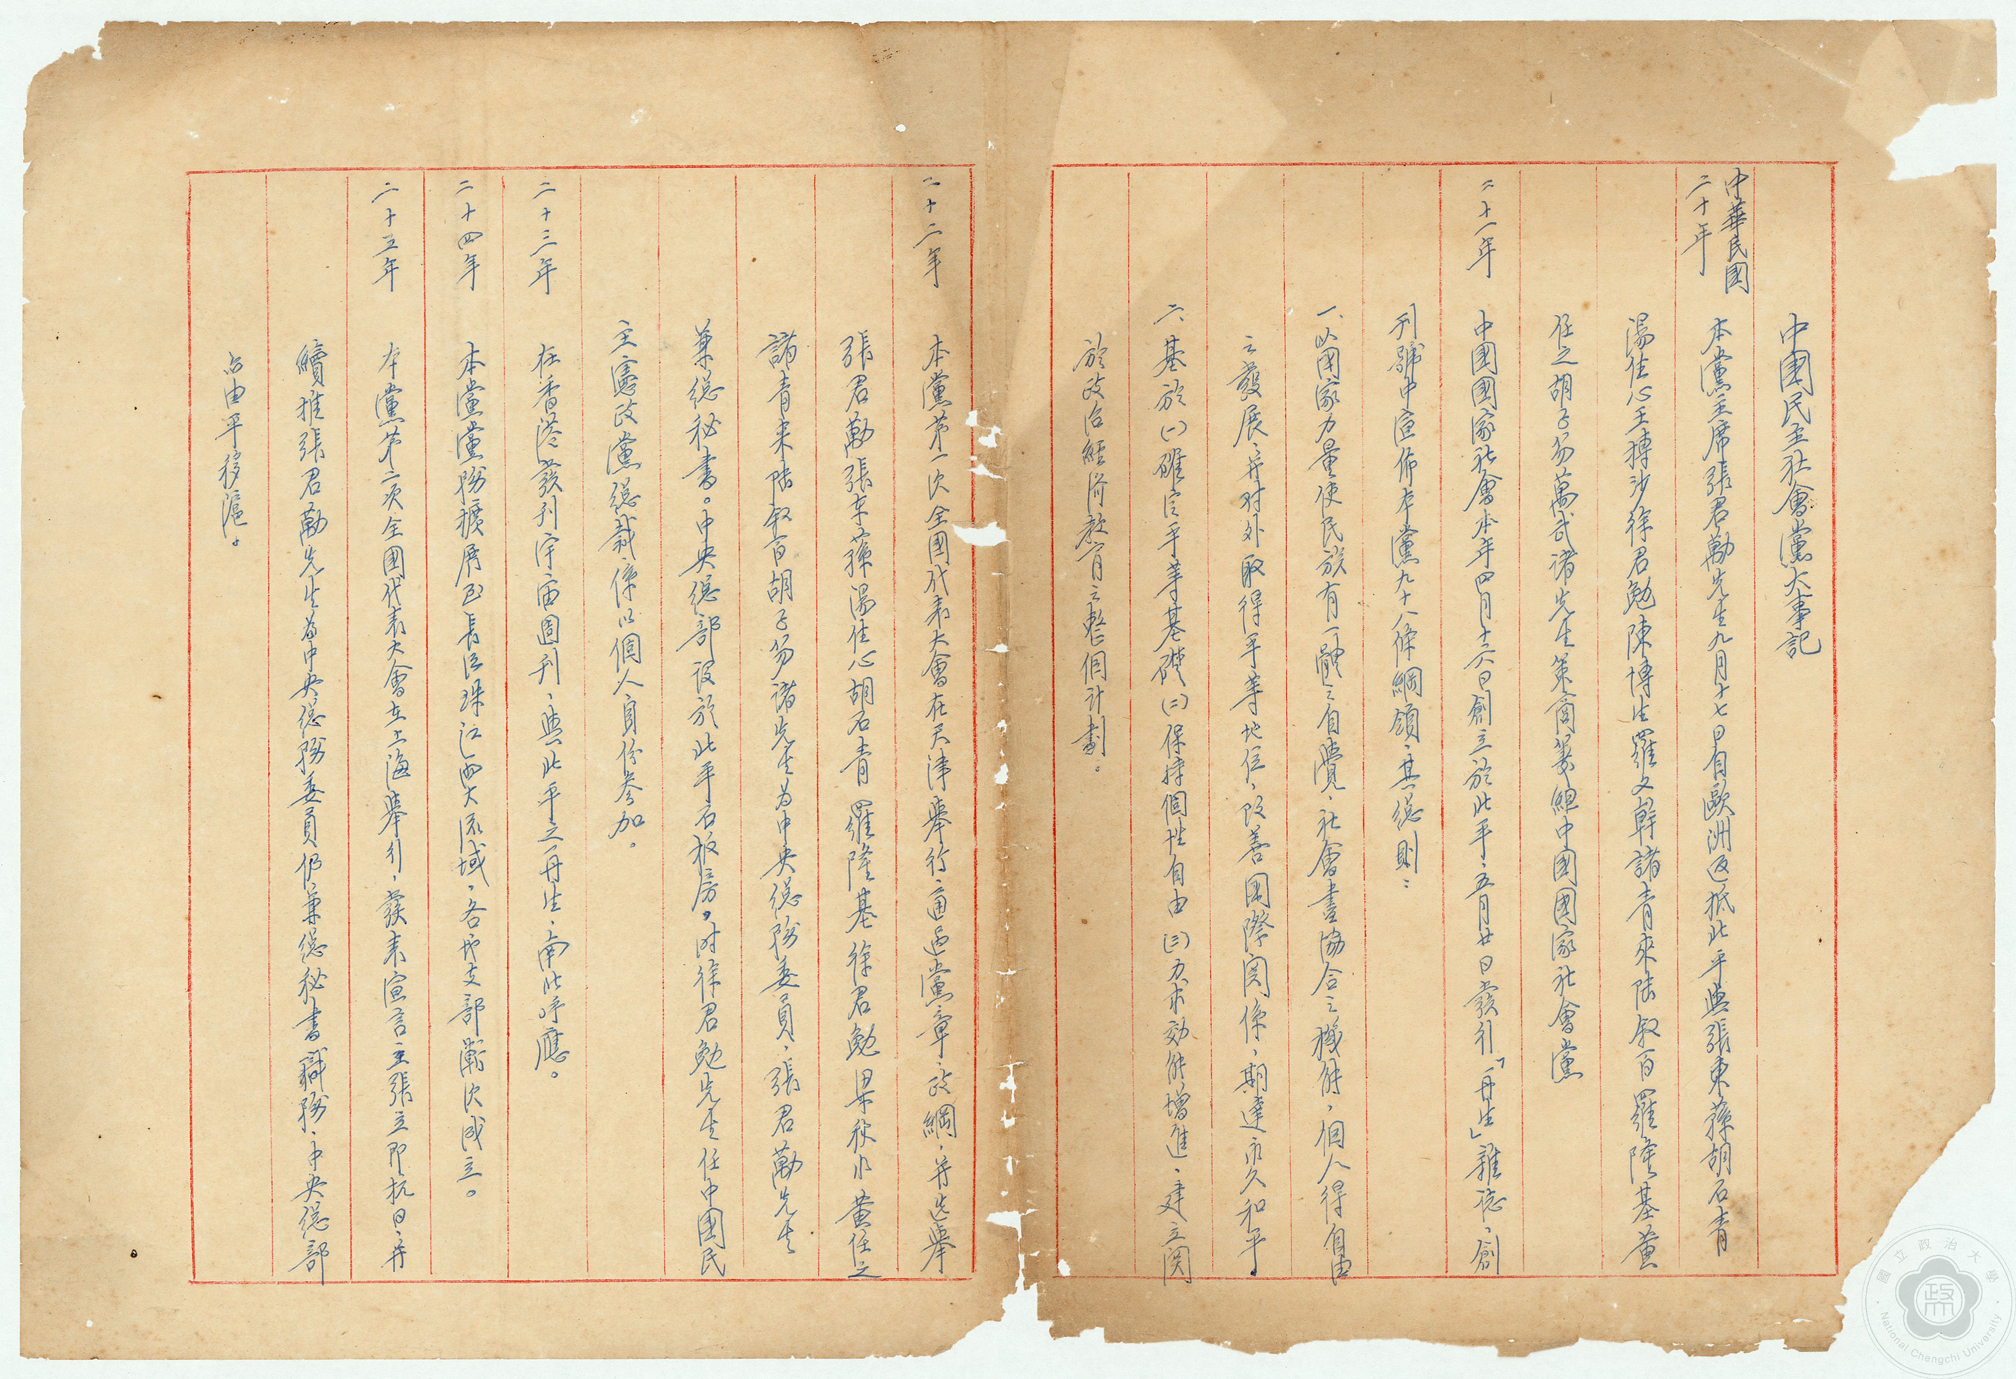 中國民主社會黨大事記
中華民國
二十年
本黨主席張君勱先生九月十七日自歐洲返抵北平與張東蓀胡石青
湯住心王搏沙徐君勉陳博生羅文幹諸青來陸叙百羅隆基黃
任之胡子笏萬武諸先生策商籌組中國國家社會黨
二十一年
中國國家社會本年四月十六日創立於北平、五月廿日發行「再生」雜誌、創
刊號中宣佈本黨九十八條綱領、其總則：
一、以國家力量使民族有一體之自覺、社會盡協合之機能、個人得自由
之發展、并对外取得平等地位、改善國際関係、期達永久和平。
二、基於(一)確定平等基礎(二)保持個性自由(三)力求効能增進、建立関
於政治經濟教育之整個計劃。
二十二年
本黨第一次全國代表大會在天津舉行、通過黨章、政綱、并选舉
張君勱張東蓀湯住心胡石青羅隆基徐君勉梁秋水黃任之
諸青來陸叙百胡子笏諸先生为中央總務委員、張君勱先生
兼總秘書。中央總部设於北平石板房。时徐君勉先生任中國民
主憲政黨總裁係以個人身份参加。
二十三年
在香港發刊宇宙週刊、與北平之再生、南北呼應。
二十四年
本黨黨務擴展至長江珠江兩大流域、各地支部漸次成立。
二十五年
本黨第二次全國代表大會在上海舉行、發表宣言主張立即抗日、并
續推張君勱先生为中央總務委員仍兼總秘書職務、中央總部
亦由平移滬。
國立政治大學
National Chengchi University
政大